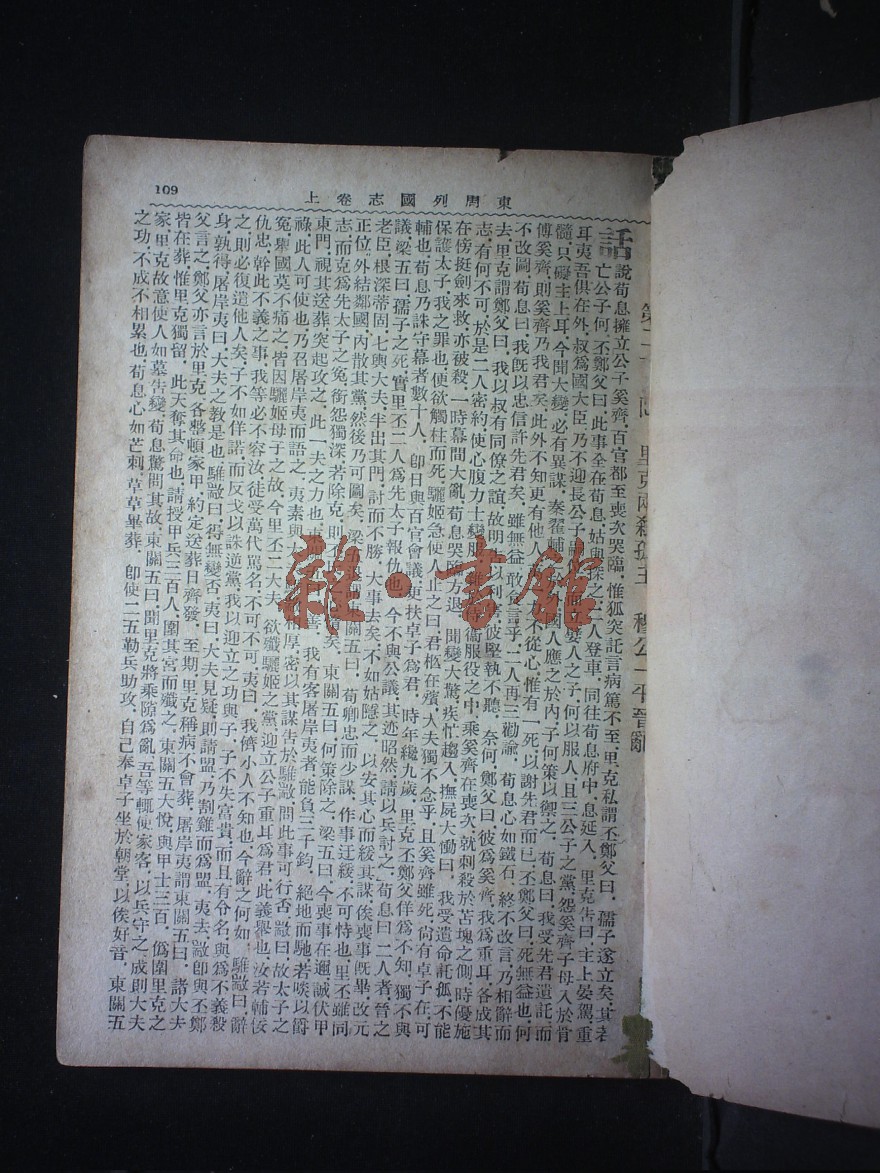 109
上卷志國列周東
里克兩殺孤主 穆公一平晉亂
話說荀息擁立公子奚齊，百官都至喪次哭臨，惟狐突託言病篤不至，里克私謂丕鄭父曰，孺子遂立矣，其若
亡公子何，丕鄭父曰，此事全在荀息，姑與探之，二人登車，同往荀息府中，息延入，里克告曰，主上晏駕，重
耳夷吾俱在外，叔爲國大臣，乃不迎長公子
嬖人之子，何以服人，且三公子之黨，怨奚齊子母入於骨
髓，只礙主上耳，今聞大變，必有異謀，秦翟輔
國人應之於內，子何策以禦之，荀息曰，我受先君遺託，而
傅奚齊，則奚齊乃我君矣，此外不知更有他人
不從心，惟有一死，以謝先君而已，丕鄭父曰，死無益也，何
不改圖，荀息曰，我旣以忠信許先君矣，雖無益，敢食言乎，二人再三勸諭，荀息心如鐵石，終不改言，乃相辭而
去，里克謂鄭父曰，我以叔有同僚之誼，故明
以利
彼堅執不聽，奈何，鄭父曰，彼爲奚齊，我爲重耳，各成其
志，有何不可，於是二人密約，使心腹力士，變服
衛服役之中，乘奚齊在喪次，就刺殺於苫塊之側，時優施
在傍，挺劍來救，亦被殺，一時幕間大亂，荀息哭臨方退，聞變大驚，疾忙趨入，撫屍大慟曰，我受遺命託孤，不能
保護太子，我之罪也，便欲觸柱而死，驪姬急使人止之曰，君柩在殯，大夫獨不念乎，且奚齊雖死，尙有卓子在，可
輔也，荀息乃誅守幕者數十人，卽日與百官會議，更扶卓子爲君，時年纔九歲，里克丕鄭父佯爲不知，獨不與
議，梁五曰，孺子之死，實里丕二人爲先太子報仇也，今不與公議，其迹昭然，請以兵討之，荀息曰，二人者，晉之
老臣，根深蒂固，七輿大夫，半出其門，討而不勝，大事去矣，不如姑隱之，以安其心，而緩其謀，俟喪事旣畢，改元
正位，外結鄰國，內散其黨，然後乃可圖矣，梁五
關五曰，荀卿忠而少謀，作事迂緩，不可恃也，里丕雖同
志，而克爲先太子之冤，銜怨獨深，若除克，則丕
矣，東關五曰，何策除之，梁五曰，今喪事在邇，誠伏甲
東門，視其送葬，突起攻之，此一夫之力也，東
善，我有客屠岸夷者，能負三千鈞，絕地而馳，若啖以爵
祿，此人可使也，乃召屠岸夷而語之，夷素與大
厚，密以其謀告於騅歂，問此事可行否，歂曰，故太子之
冤，舉國莫不痛之，皆因驪姬母子之故，今里丕二大夫，欲殲驪姬之黨，迎立公子重耳爲君，此義舉也，汝若輔佞
仇忠，幹此不義之事，我等必不容汝，徒受萬代罵名，不可不可，夷曰，我儕小人不知也，今辭之何如，騅歂曰，辭
之，則必復遣他人矣，子不如佯諾，而反戈以誅逆黨，我以迎立之功與子，子不失富貴，而且有令名，與爲不義殺
身，孰得，屠岸夷曰，大夫之教是也，騅歂曰，得無變否，夷曰，大夫見疑，則請盟，乃割雞而爲盟，夷去，歂卽與丕鄭
父言之，鄭父亦言於里克，各整頓家甲，約定送葬日齊發，至期，里克稱病不會葬，屠岸夷謂東關五曰，諸大夫
皆在葬，惟里克獨留，此天奪其命也，請授甲兵三百人，圍其宮而殲之，東關五大悅，與甲士三百，僞圍里克之
家，里克故意使人如墓告變，荀息驚問其故，東關五曰，聞里克將乘隙爲亂，吾等輒使家客，以兵守之，成則大夫
之功，不成不相累也，荀息心如芒刺，草草畢葬，卽使二五勒兵助攻，自己奉卓子坐於朝堂，以俟好音，東關五
雜·書館